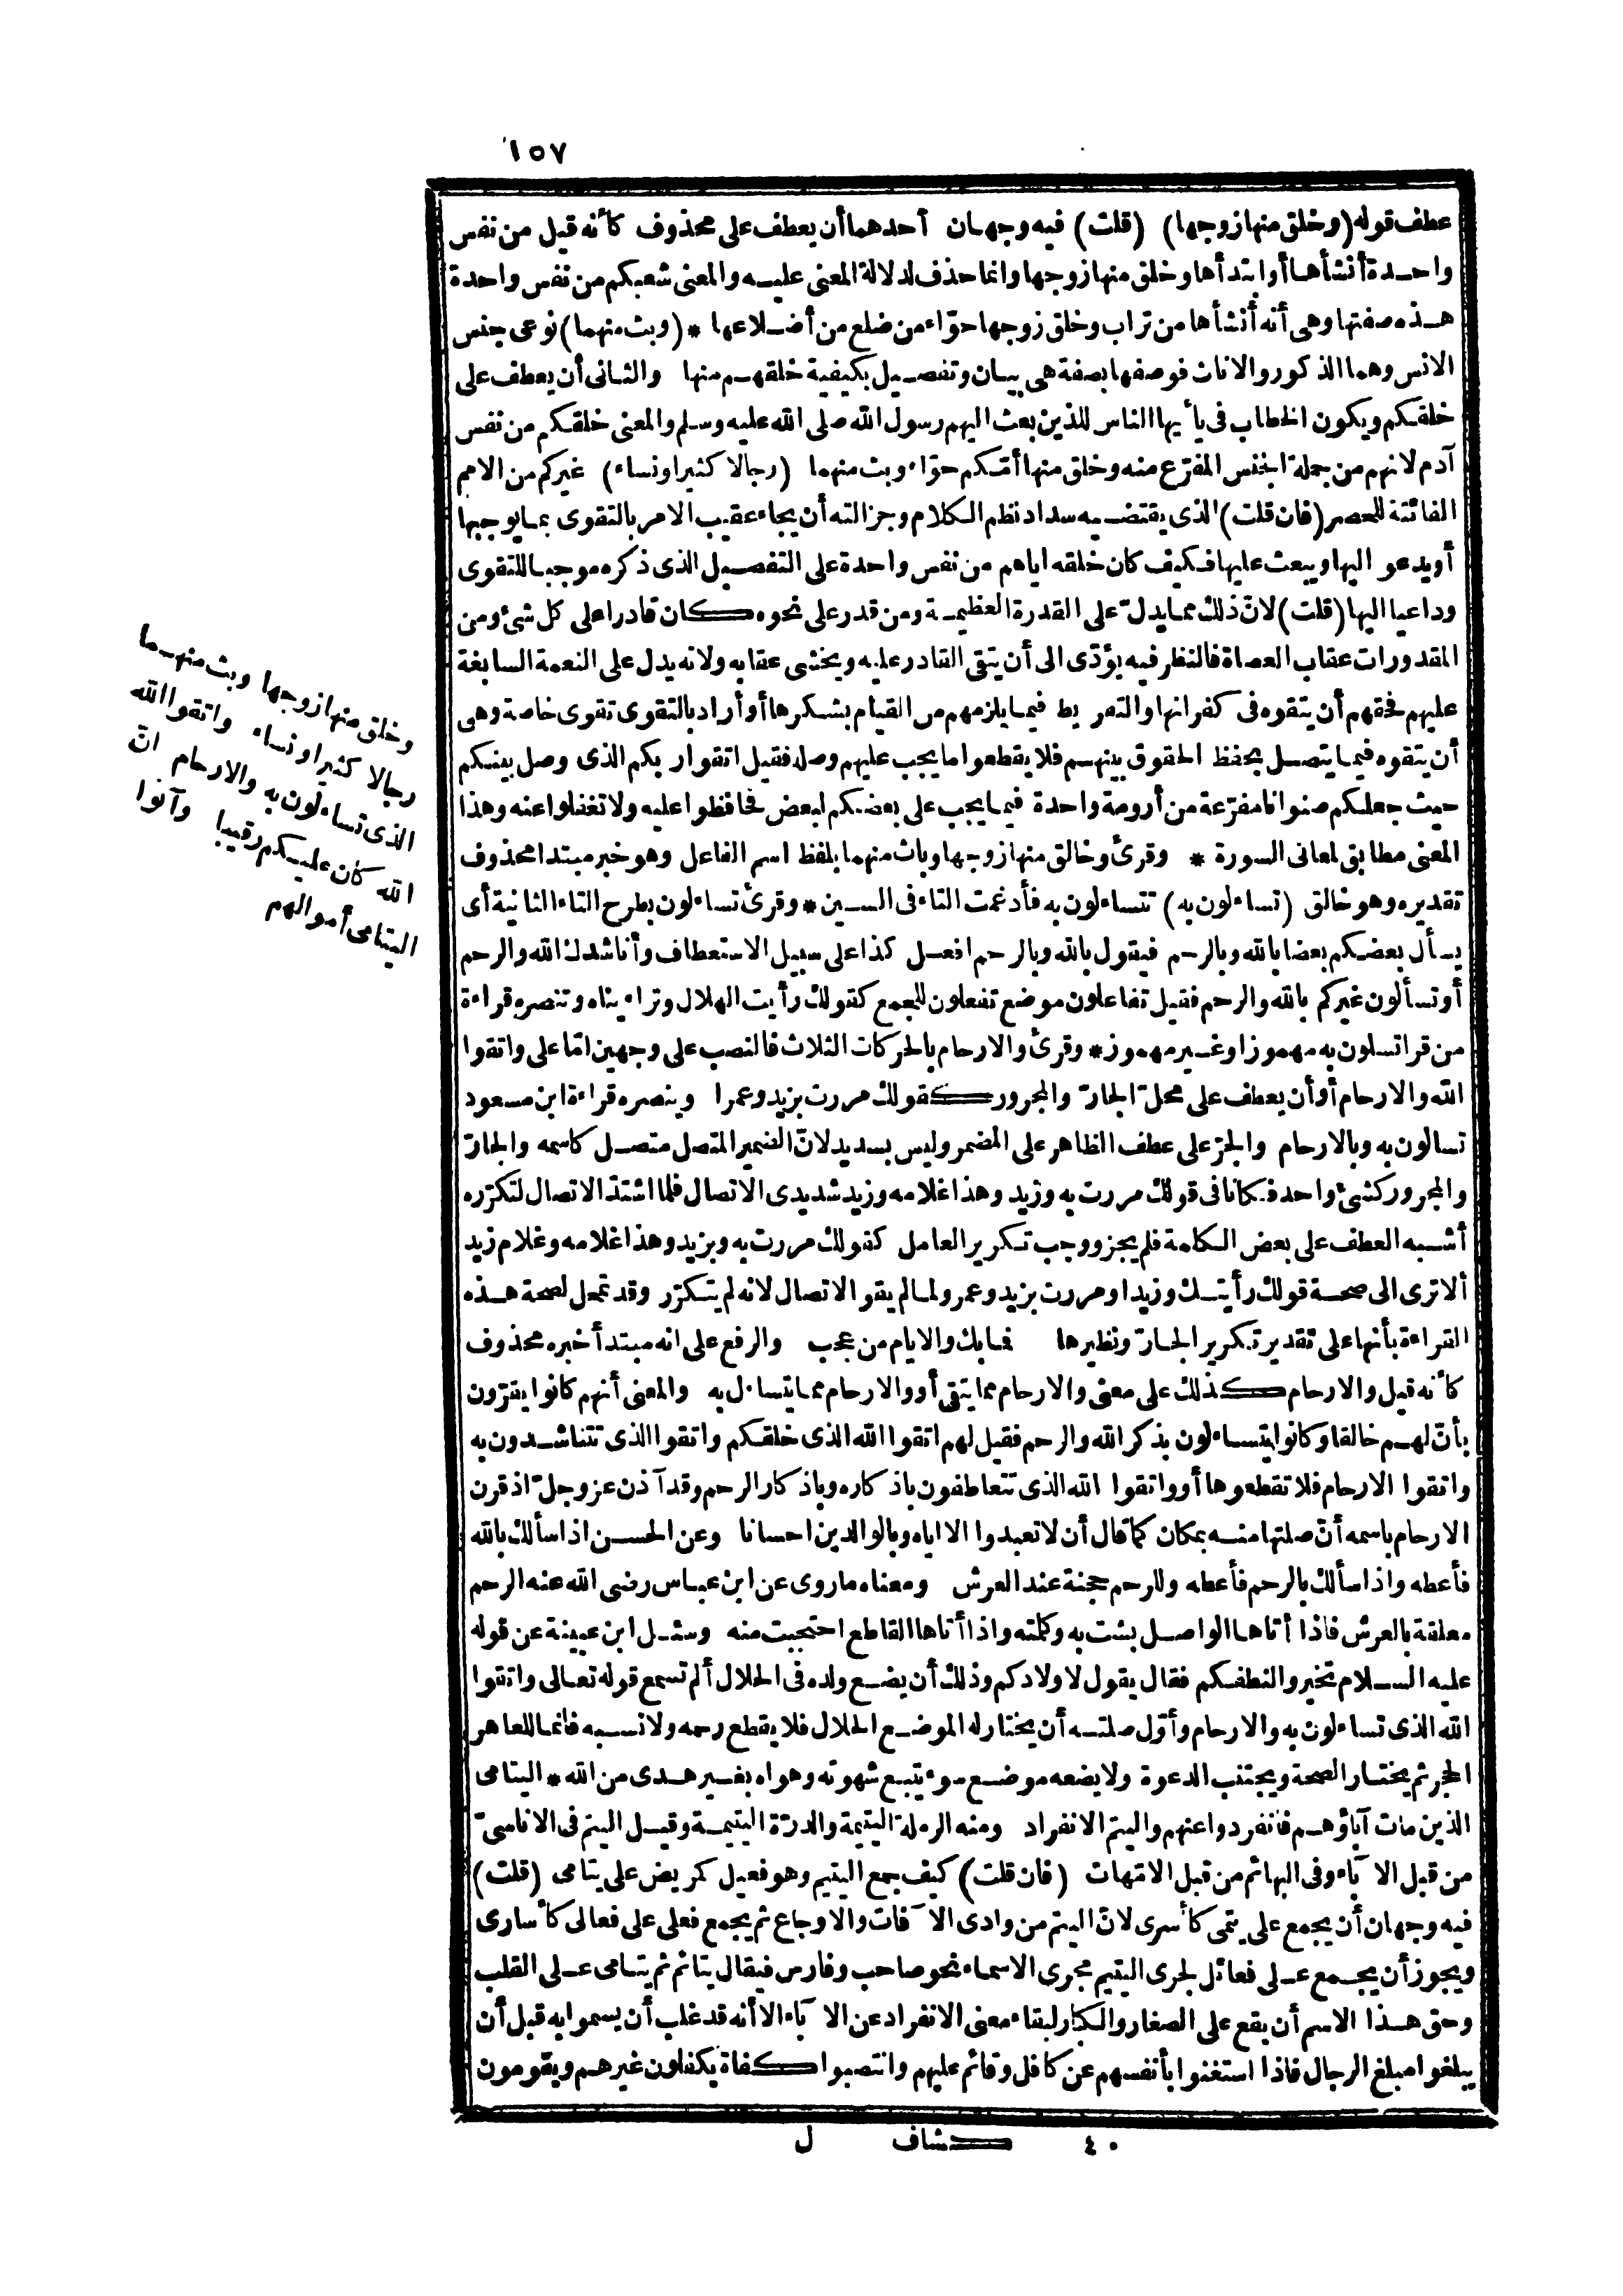 ١٥٧
عطف قوله (وخلق منها زوجها) (قلت) فيه وجهان أحدهما أن يعطف على محذوف كأنه قيل من نفس
واحدة أنشأها أو ابتدأها وخلق منها زوجها وانما حذف لدلالة المعنى عليه والمعنى شعبكم من نفس واحدة
هذه صفتها وهى أنه أنشأها من تراب وخلق زوجها حوّاء من ضلع من أضلاعها * (وبث منهما) نوعى جنس
الانس وهما الذكور والاناث فوصفها بصفة هى بيان وتفصيل بكيفية خلقهم منها والثانى أن يعطف على
خلقكم ويكون الخطاب فى يأيها الناس للذين بعث اليهم رسول الله صلى الله عليه وسلم والمعنى خلقكم من نفس
آدم لانهم من جملة الجنس المفرّع منه وخلق منها أمّكم حوّاء وبث منهما (رجالا كثيرا ونساء) غيركم من الامم
الفائتة للحصر (فان قلت) الذى يقتضيه سداد نظم الكلام وجزالته أن يجاء عقيب الامر بالتقوى بما يوجبها
أو يدعو اليها ويبعث عليها فكيف كان خلقه اياهم من نفس واحدة على التفصيل الذى ذكره موجبا للتقوى
وداعيا اليها (قلت) لانّ ذلك مما يدلّ على القدرة العظيمة ومن قدر على نحوه كان قادرا على كل شئ ومن
المقدورات عقاب العصاة فالنظر فيه يؤدّى الى أن يتقى القادر عليه ويخشى عقابه ولانه يدل على النعمة السابغة
عليهم فحقهم أن يتقوه فى كفرانها والتفريط فيما يلزمهم من القيام بشكرها أو أراد بالتقوى تقوى خاصة وهى
أن يتقوه فيما يتصل بحفظ الحقوق بينهم فلا يقطعوا ما يجب عليهم وصله فقيل اتقوا ربكم الذى وصل بينكم
حيث جعلكم صنوانا مفرّعة من أرومة واحدة فيما يجب على بعضكم لبعض فحافظوا عليه ولا تغفلوا عنه وهذا
المعنى مطابق لمعانى السورة * وقرئ وخالق منها زوجها وباث منهما بلفظ اسم الفاعل وهو خبر مبتدا محذوف
تقديره وهو خالق (تساءلون به) تتساءلون به فأدغمت التاء فى السين * وقرئ تساءلون بطرح التاء الثانية أى
يسأل بعضكم بعضا بالله وبالرحم فيقول بالله وبالرحم افعل كذا على سبيل الاستعطاف وأناشدك الله والرحم
أو تسألون غيركم بالله والرحم فقيل تفاعلون موضع تفعلون للجمع كقولك رأيت الهلال وتراءيناه وتنصره قراءة
من قرا تسلون به مهموزا وغير مهموز * وقرئ والارحام بالحركات الثلاث فالنصب على وجهين امّا على واتقوا
الله والارحام أو أن يعطف على محلّ الجارّ والمجرور كقولك مررت بزيد وعمرا وينصره قراءة ابن مسعود
تسالون به وبالارحام والجرّ على عطف الظاهر على المضمر وليس بسديد لانّ الضمير المتصل متصل كاسمه والجارّ
والمجرور كشئ واحد فكانا فى قولك مررت به وزيد وهذا غلامه وزيد شديدى الاتصال فلما اشتدّ الاتصال لتكرّره
أشبه العطف على بعض الكلمة فلم يجز ووجب تكرير العامل كقولك مررت به وبزيد وهذا غلامه وغلام زيد
ألا ترى الى صحة قولك رأيتك وزيدا ومررت بزيد وعمرو لما لم يقو الاتصال لانه لم يتكرّر وقد تمحل لصحة هذه
القراءة بأنها على تقدير تكرير الجارّ ونظيرها فما بك والايام من عجب والرفع على انه مبتدأ خبره محذوف
كأنه قيل والارحام كذلك على معنى والارحام مما يتقى أو والارحام مما يتساءل به والمعنى أنهم كانوا يقرّون
بأنّ لهم خالقا وكانوا يتساءلون بذكر الله والرحم فقيل لهم اتقوا الله الذى خلقكم واتقوا الذى تتناشدون به
واتقوا الارحام فلا تقطعوها أو واتقوا الله الذى تتعاطفون باذكاره وباذكار الرحم وقد آذن عز وجلّ اذ قرن
الارحام باسمه أنّ صلتها منه بمكان كما قال أن لا تعبدوا الا اياه وبالوالدين احسانا وعن الحسن اذا سألك بالله
فأعطه واذا سألك بالرحم فأعطه وللرحم حجنة عند العرش ومعناه ما روى عن ابن عباس رضى الله عنه الرحم
معلقة بالعرش فاذا أتاها الواصل بشت به وكلمته واذا أتاها القاطع احتجبت منه وسئل ابن عيينة عن قوله
عليه السلام تخيروا لنطفكم فقال يقول لاولادكم وذلك أن يضع ولده فى الحلال ألم تسمع قوله تعالى واتقوا
الله الذى تساءلون به والارحام وأوّل صلته أن يختار له الموضع الحلال فلا يقطع رحمه ولا نسبه فانما للعاهر
الحجر ثم يختار الصحة ويجتنب الدعوة ولا يضعه موضع سوء يتبع شهوته وهواه بغير هدى من الله * اليتامى
الذين مات آباؤهم فانفردوا عنهم واليتم الانفراد ومنه الرملة اليتيمة والدرّة اليتيمة وقيل اليتم فى الاناسىّ
من قبل الآباء وفى البهائم من قبل الامّهات (فان قلت) كيف جمع اليتيم وهو فعيل كمريض على يتامى (قلت)
فيه وجهان أن يجمع على يتمى كأسرى لانّ اليتم من وادى الآفات والاوجاع ثم يجمع فعلى على فعالى كأسارى
ويجوز أن يجمع على فعائل لجرى اليتيم مجرى الاسماء نحو صاحب وفارس فيقال يتائم ثم يتامى على القلب
وحق هذا الاسم أن يقع على الصغار والكبار لبقاء معنى الانفراد عن الآباء الا أنه قد غلب أن يسموا به قبل أن
يبلغوا مبلغ الرجال فاذا استغنوا بأنفسهم عن كافل وقائم عليهم وانتصبوا كفاة يكفلون غيرهم ويقومون
وخلق منها زوجها وبث منهما
رجالا كثيرا ونساء واتقوا الله
الذى تساءلون به والارحام انّ
الله كان عليكم رقيبا وآتوا
اليتامى أموالهم
٤٠ كشاف ل